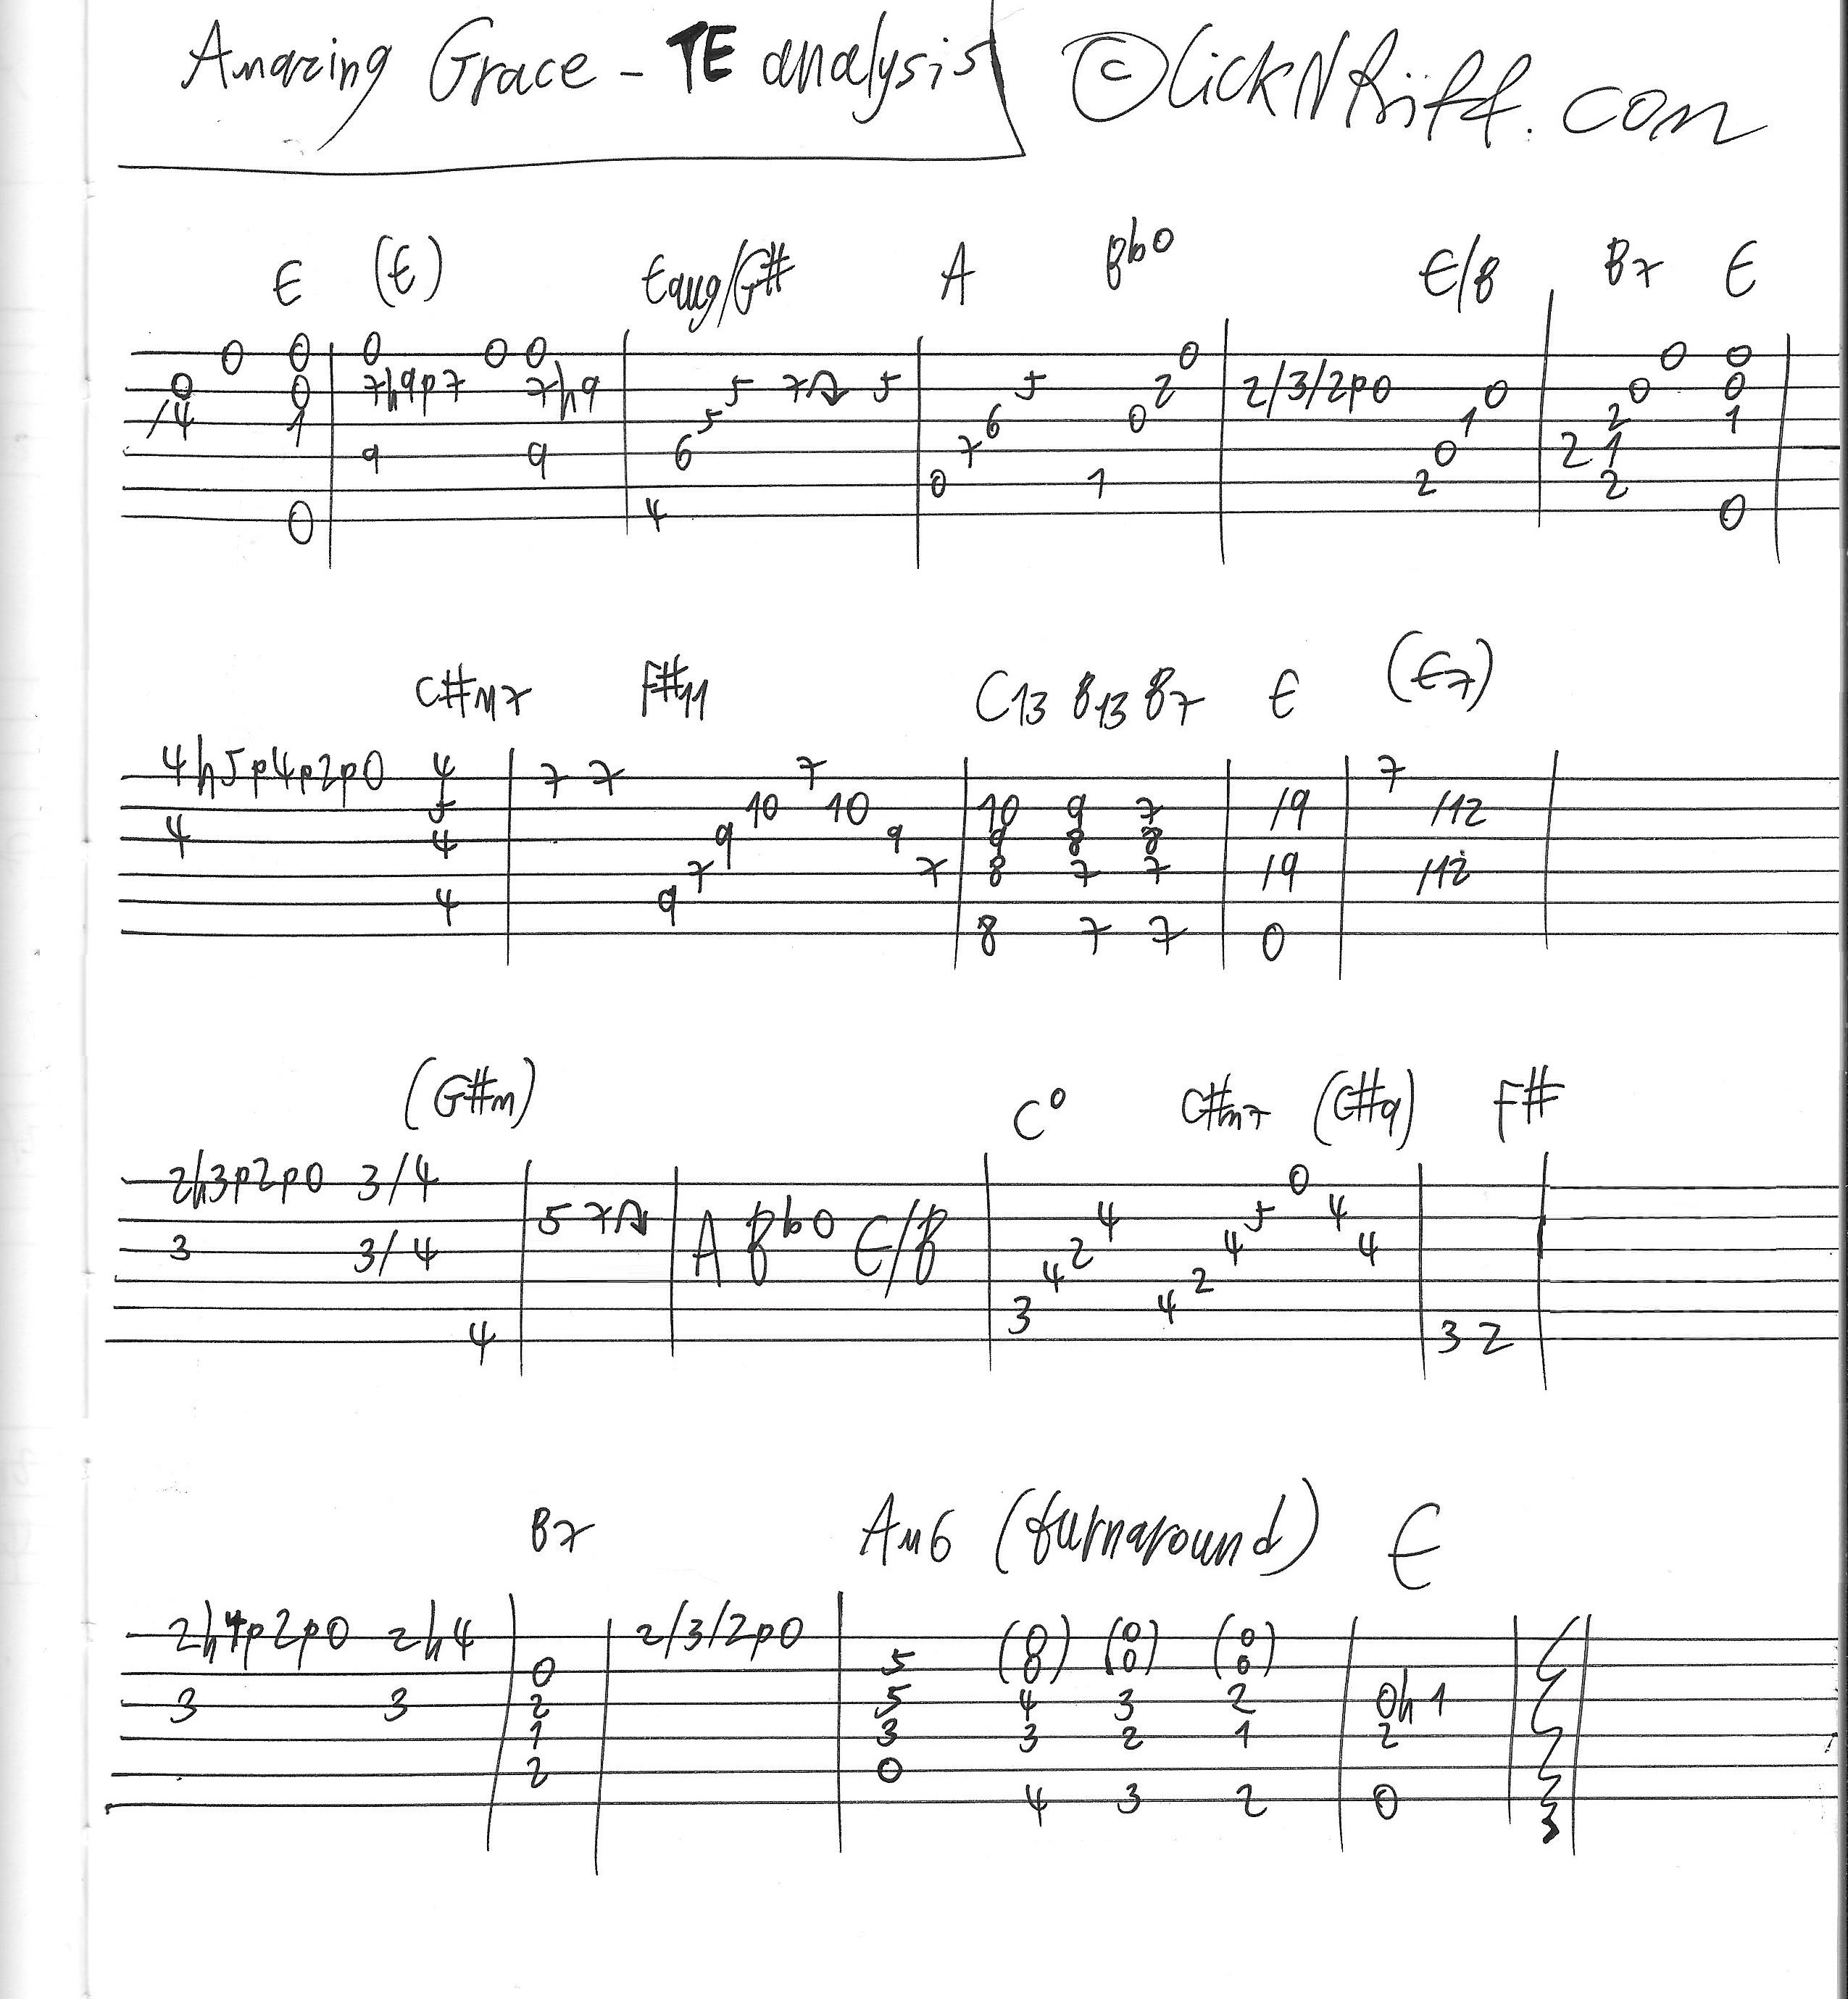 Amazing Grace - TE analysis ©LickNRiff.com
E (E) Eaug/G# A Bb0 E/B B7 E
0 0 0 0 0 0 0 0
0 0 7h9p7 7h9 5 7 5 5 2 2/3/2p0 0 0 0
/4 1 5 6 0 1 2 1
9 9 6 7 0 2 1
0 1 2 2
0 4 0
C#m7 F#11 C13 B13 B7 E (E7)
4h5p4p2p0 4 7 7 7 7
5 10 10 10 9 7 /9 /12
4 4 9 9 9 8 8
7 7 8 7 7 /9 /12
4 9
8 7 7 0
(G#m) C0 C#m7 (C#9) F#
2h3p2p0 3/4 0
5 7 A Bb0 E/B 4 5 4
3 3/4 2 4 4
4 2
3 4
4 3 2
B7 Am6 (turnaround) E
2h4p2p0 2h4 2/3/2p0 (0) (0) (0)
0 5 (0) (0) (0)
3 3 2 5 4 3 2 0h1
1 3 3 2 1 2
2 0
4 3 2 0